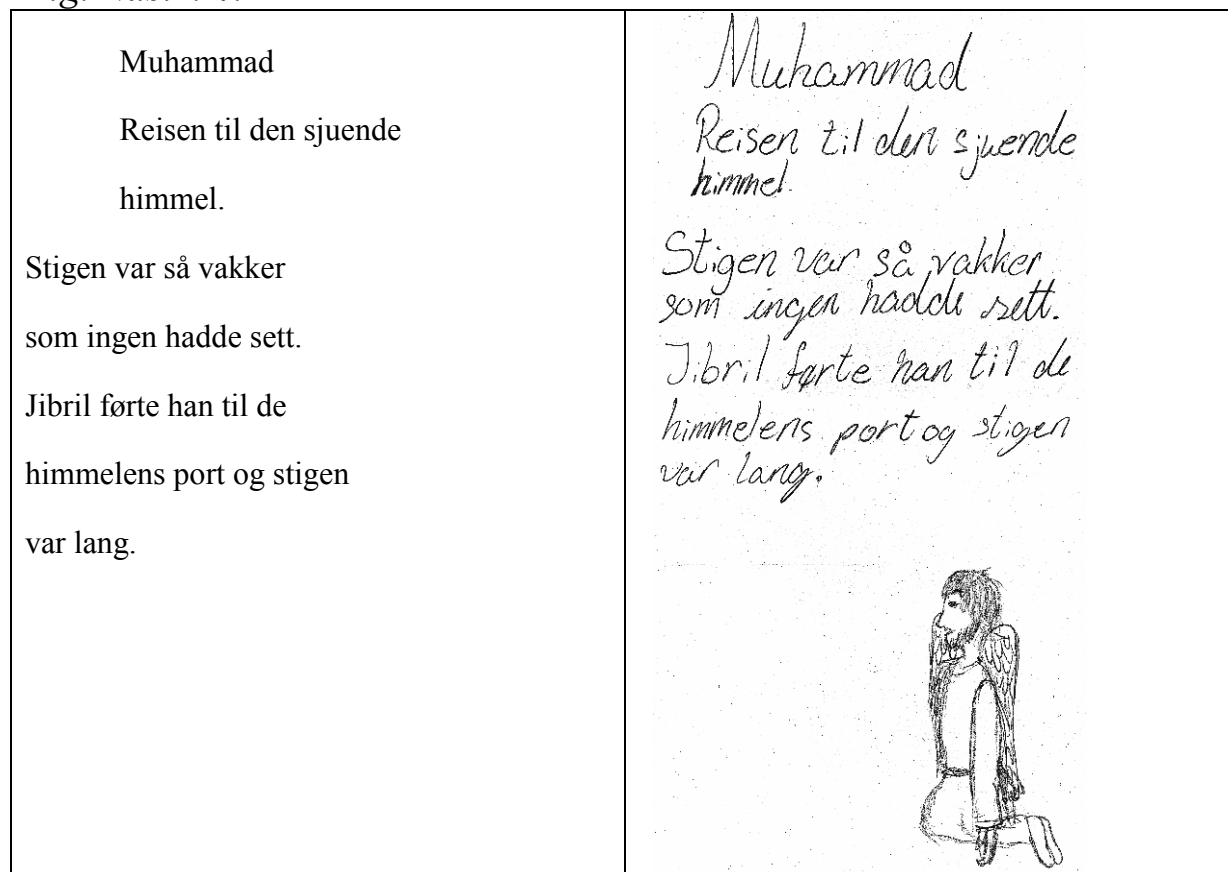 Muhammad
Reisen til den sjuende
himmel.
Stigen var så vakker
som ingen hadde sett.
Jibril førte han til de
himmelens port og stigen
var lang.
Muhammad
Reisen til den sjuende
himmel.
Stigen var så vakker
som ingen hadde sett.
Jibril førte han til de
himmelens port og stigen
var lang.